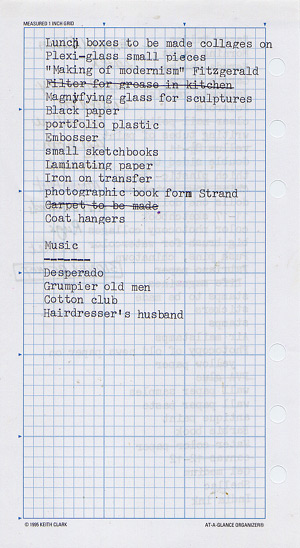 MEASURED 1 INCH GRID
Lunch boxes to be made collages on
Plexi-glass small pieces
"Making of modernism" Fitzgerald
Filter for grease in kitchen
Magnyfying glass for sculptures
Black paper
portfolio plastic
Embosser
small sketchbooks
Laminating paper
Iron on transfer
photographic book form Strand
Carpet to be made
Coat hangers
Music
-------
Desperado
Grumpier old men
Cotton club
Hairdresser's husband
© 1995 KEITH CLARK
AT-A-GLANCE ORGANIZERS®